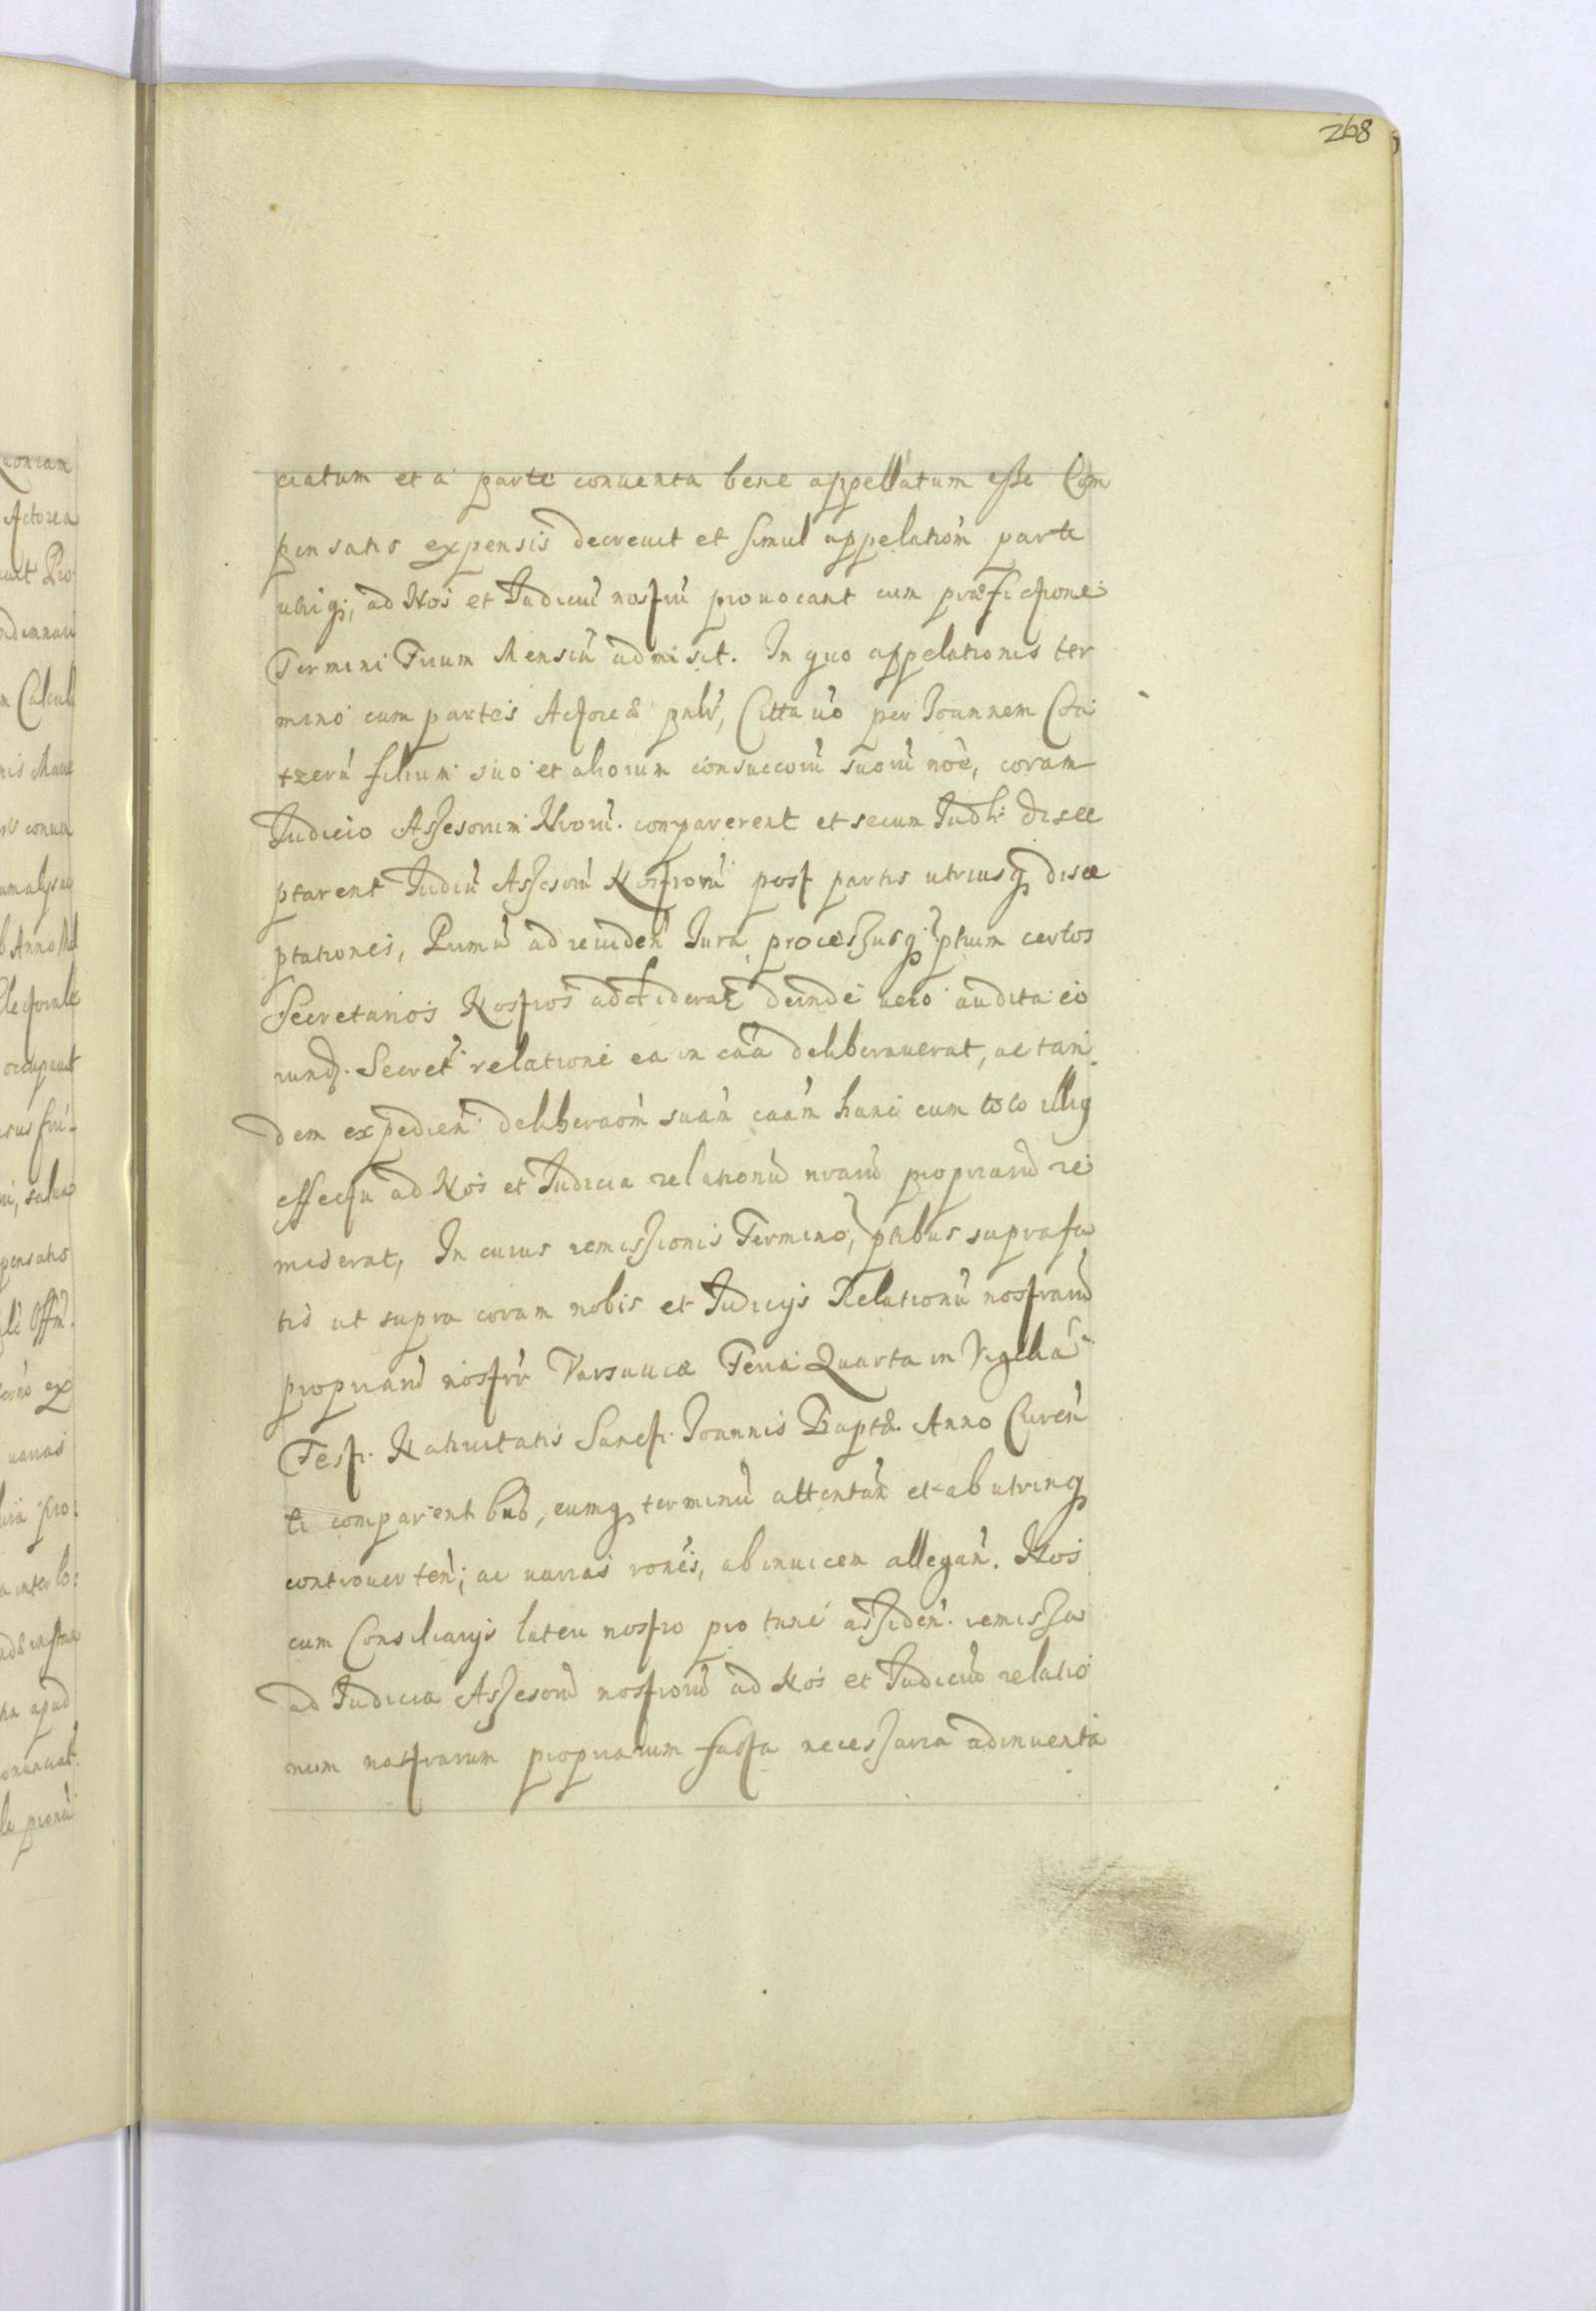 268
ciatum et a parte conuenta bene appellatum esse Com
pensatis expensis decreuit et simul appelationem parti
utriq;, ad Nos et Judiciū nostrū prouocant cum præfictione
Termini Trium Mensiū admisit. In quo appelationis ter
mino cum parteis Actorea pnlr, Citta uō per Joannem
tzerū filium suo et aliorum consuccorū suorū nōe, coram
Judicio Assesorum Nrorū. comparerent et secum Judlr: disce
ptarent Judiū Assesorū Nostrorū post partis utriusq; disce
ptationes, Primū ad reuideñ Jura processusq; ptium certos
Secretarios Nostros addiderat deinde uero audita eo
rund. Secret. relatione ea in cāa deliberauerat, ac tan
dem expedien. deliberaōm suam cāam hanc cum toto illiq
effectu ad Nos et Judicia relationū nrarū propriarū re
miserat, In cuius remissionis Termino, ptibus suprafa
tis ut supra coram nobis et Judicijs Relationū nostrarū
propriarū nostris Varsauiæ Feria Quarta in Vigilia
Festi Natiuitatis Sancti Joannis Baptæ. Anno Curen
ti comparentibus, eumq; terminū attentan et ab utrinq
controuerten; ac uarias rones, abinuicem allegan. Nos
cum Consiliarijs lateri nostro pro tunc assiden. remissa
ad Judicia Assesorū nostrorū ad Nos et Judiciū relatio
num nostrarum propriarum facta necessaria adinuenta